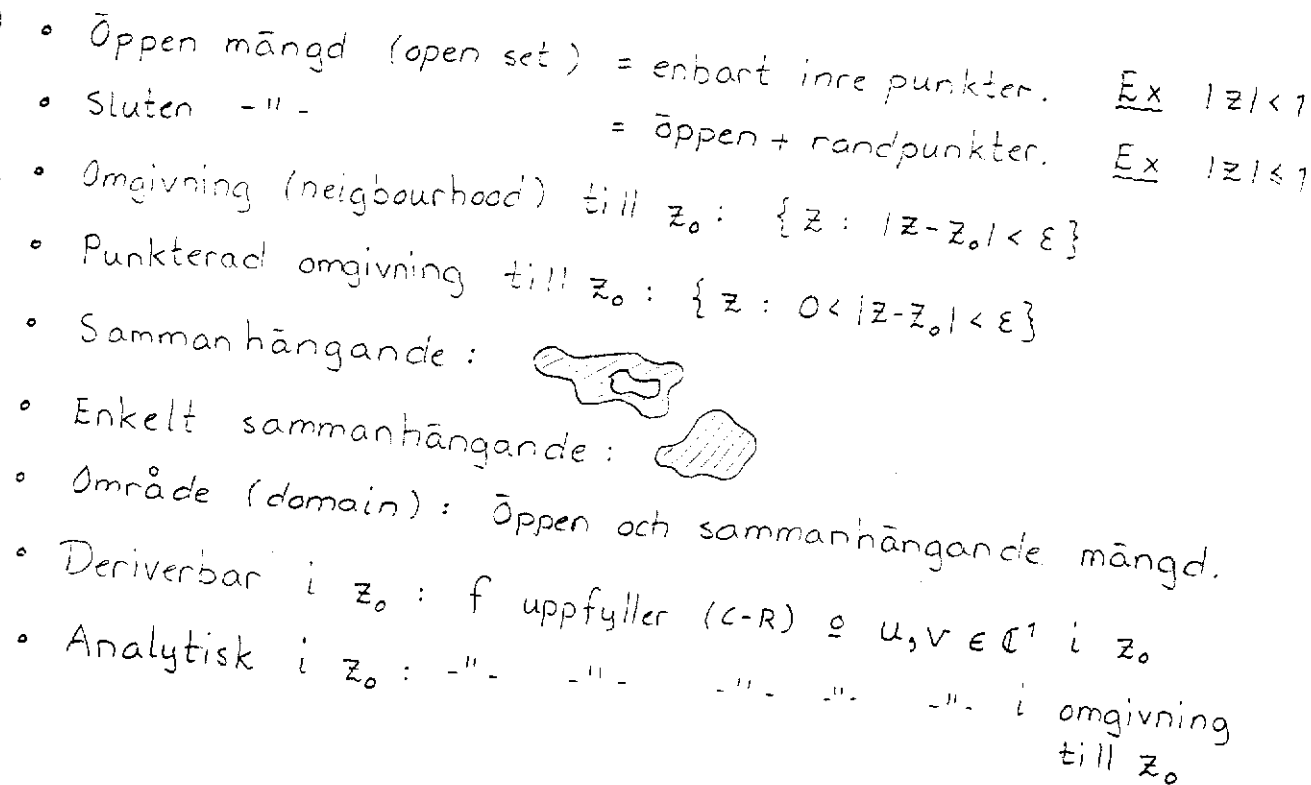 • Öppen mängd (open set) = enbart inre punkter. Ex |z| < 1
• Sluten -"- = öppen + randpunkter. Ex |z| ≤ 1
• Omgivning (neigbourhood) till z₀ : { z : |z - z₀| < ε }
• Punkterad omgivning till z₀ : { z : 0 < |z - z₀| < ε }
• Sammanhängande :
• Enkelt sammanhängande :
• Område (domain) : Öppen och sammanhängande mängd.
• Deriverbar i z₀ : f uppfyller (C-R) o u, v ∈ ℂ¹ i z₀
• Analytisk i z₀ : -"- -"- -"- -"- -"- i omgivning
till z₀